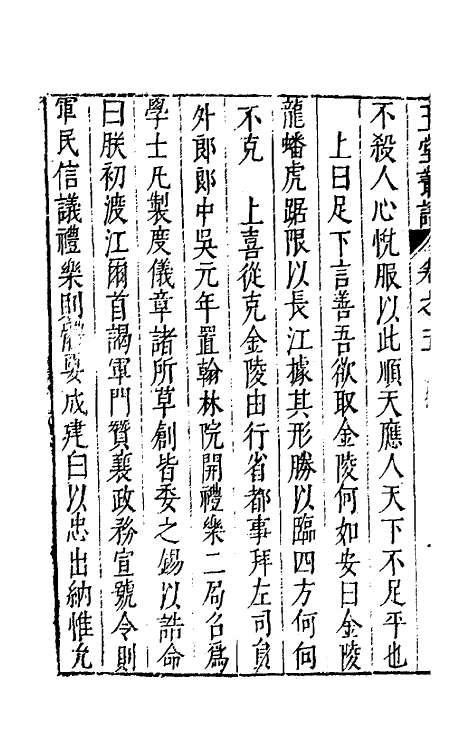 玉堂叢語 卷之五
不殺人心悅服以此順天應人天下不足平也
上曰足下言善吾欲取金陵何如安曰金陵
龍蟠虎踞限以長江據其形勝以臨四方何向
不克 上喜從克金陵由行省都事拜左司員
外郎郎中吳元年置翰林院開禮樂二局召爲
學士凡製度儀章諸所草創皆委之錫以誥命
曰朕初渡江爾首謁軍門贊襄政務宣號令則
軍民信議禮樂則體要成建曰以忠出納惟允